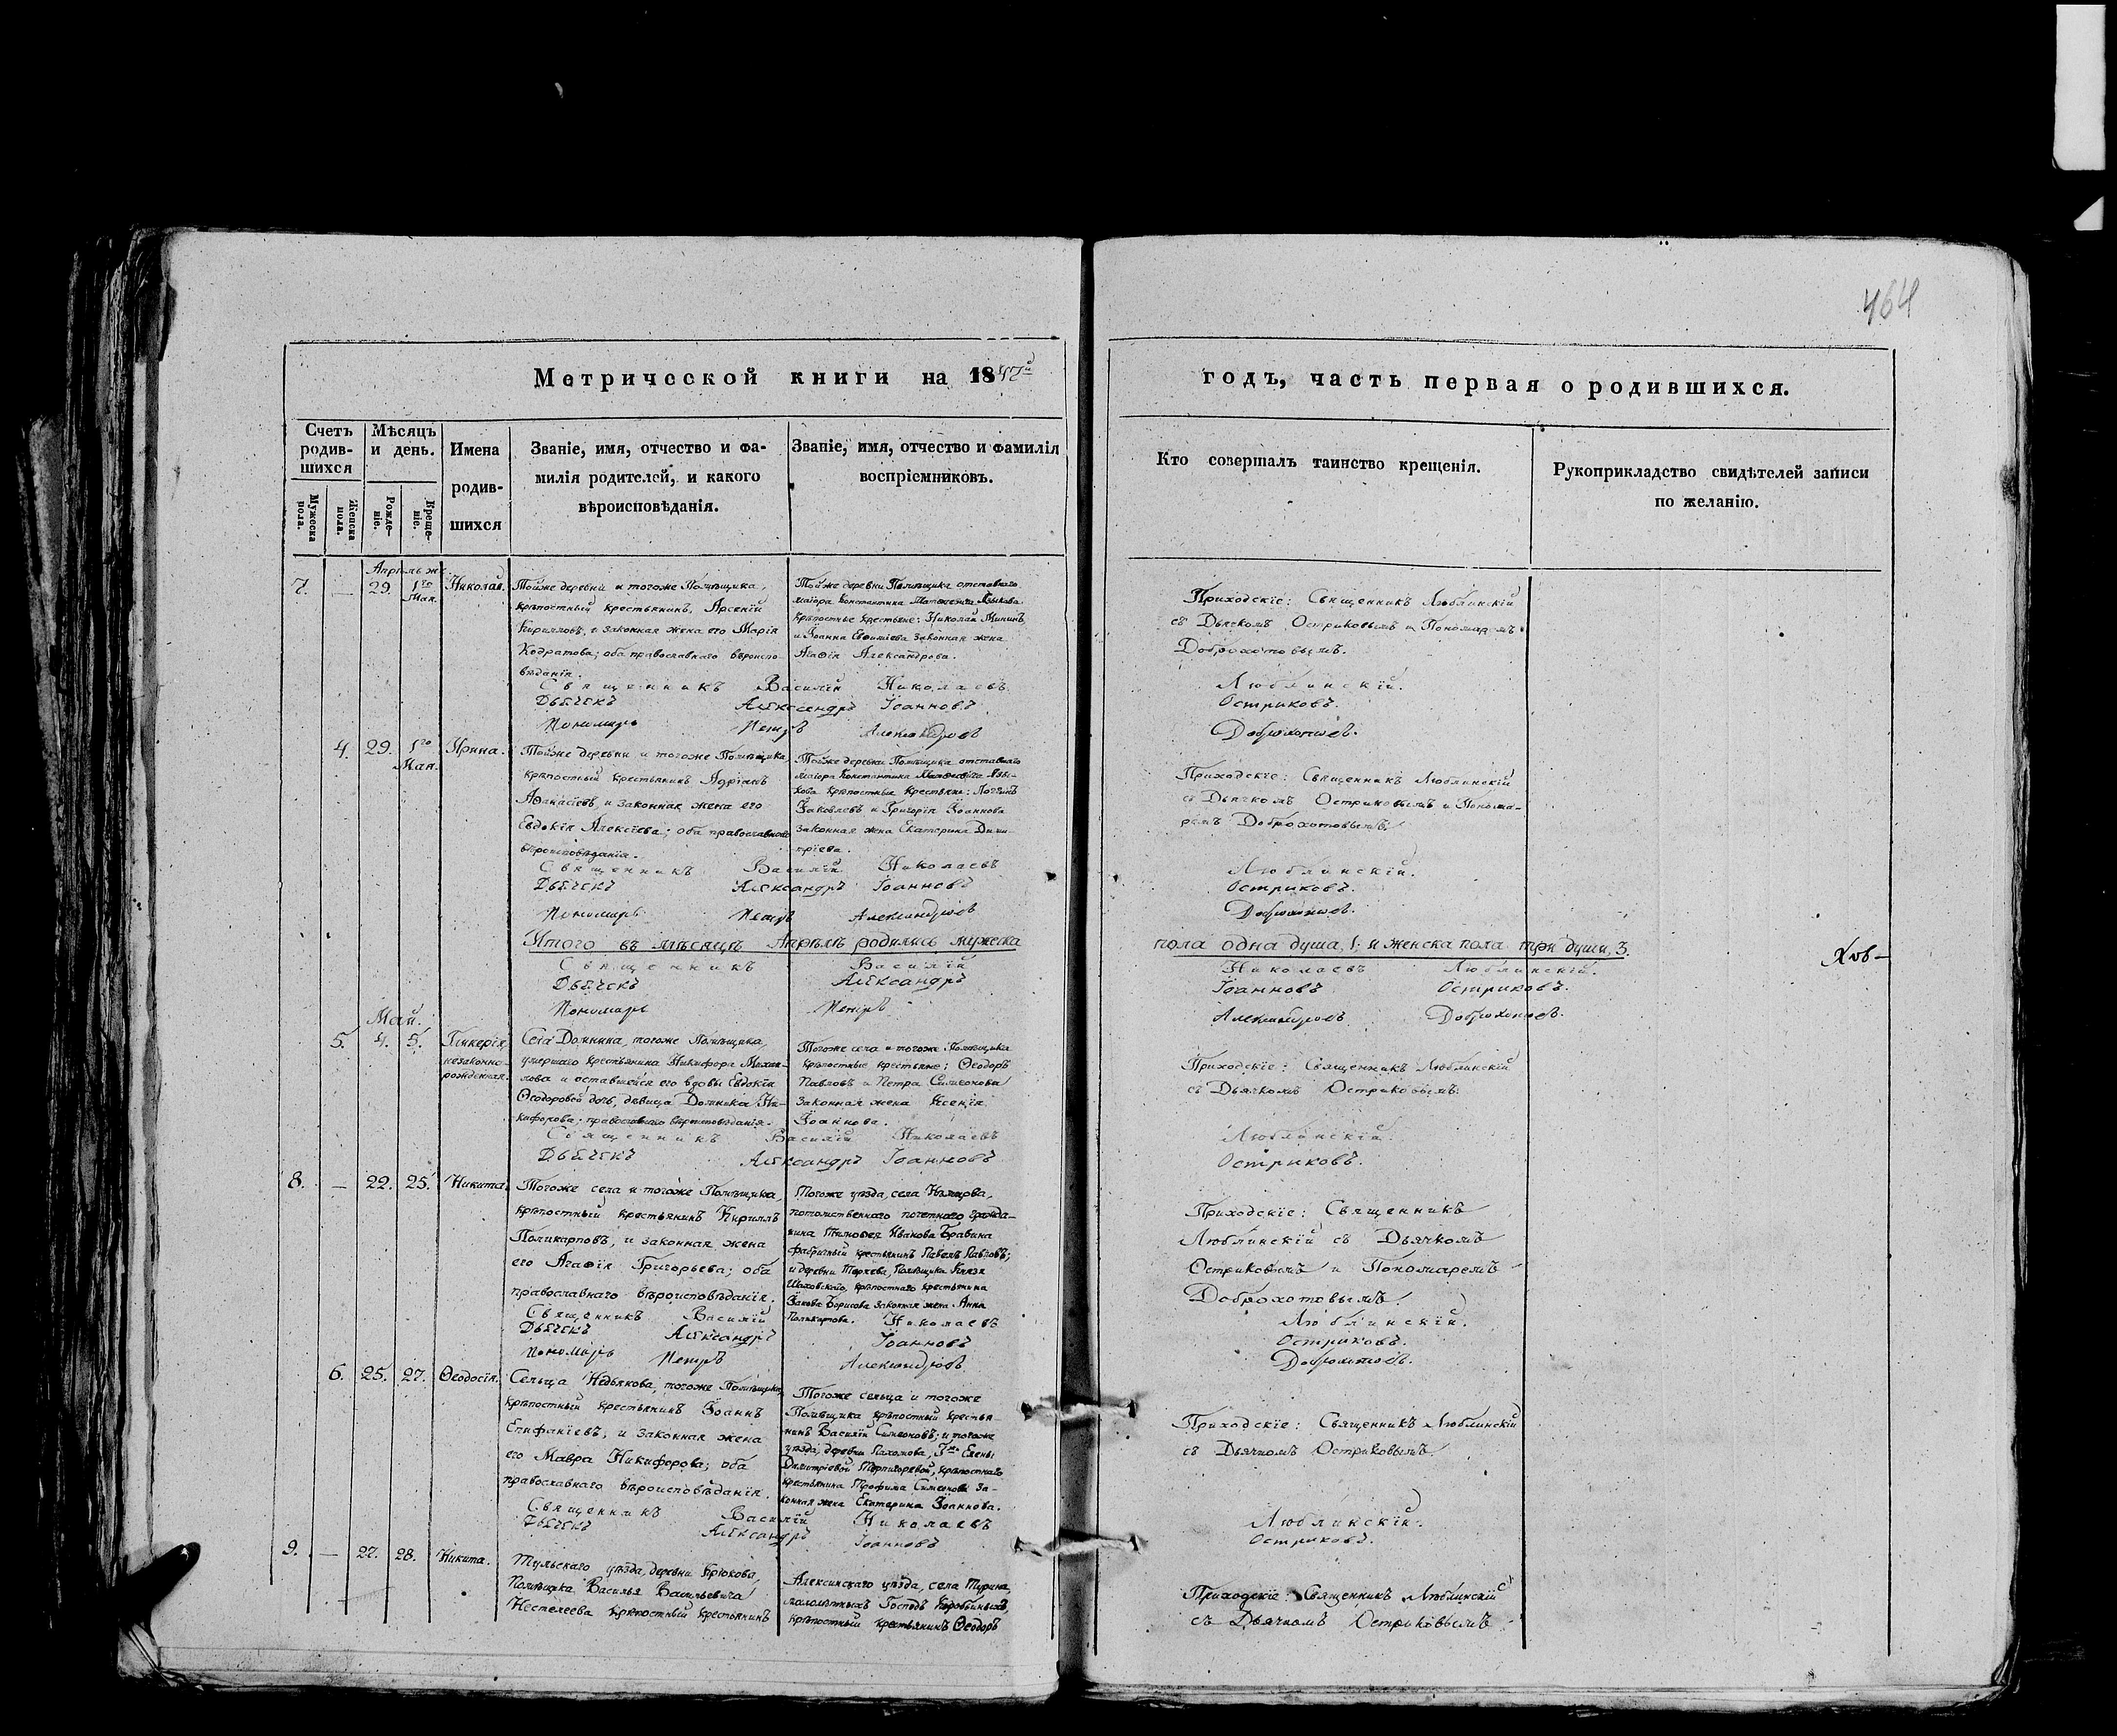 464
Метрической книги на 1847й
годъ, часть первая о родившихся.
Счетъ родившихся
Мужеска пола.
Женска пола.
Мѣсяцъ и день.
Рожденіе.
Крещеніе.
Имена родившихся
Званіе, имя, отчество и фамилія родителей, и какого вѣроисповѣданія.
Званіе, имя, отчество и фамилія воспріемниковъ.
Кто совершалъ таинство крещенія.
Рукоприкладство свидѣтелей записи по желанію.
Апрѣль же
7. — 29. 1го Мая. Николай.
Тойже деревни и тогоже Помѣщика,
крѣпостный крестьянинъ, Арсеній
Кирилловъ, и законная жена его Марія
Кодратова; оба православнаго вѣроиспо-
вѣданія.
Тойже деревни Помѣщика отставнаго
маіора Константина Языкова
крѣпостные крестьяне: Николай Мининъ
и Іоанна Евфиміева законная жена
Агафія Александрова.
Приходскіе: Священникъ Люблинскій
съ Дьячкомъ Остриковымъ и Пономаремъ
Доброхотовымъ.
Священникъ Василій Николаевъ Люблинскій.
Дьячекъ Александръ Іоанновъ Остриковъ.
Пономарь Петръ Александровъ Доброхотовъ.
4. 29. 1го Мая. Ирина.
Тойже деревни и тогоже Помѣщика,
крѣпостный крестьянинъ Адріанъ
Аѳанасіевъ, и законная жена его
Евдокія Алексѣева; оба православнаго
вѣроисповѣданія.
Тойже деревни Помѣщика отставнаго
маіора Константина Язы-
кова крѣпостные крестьяне: Логгинъ
Іаковлевъ и Григорія Іоаннова
законная жена Екатерина Дими-
тріева.
Приходскіе: Священникъ Люблинскій
съ Дьячкомъ Остриковымъ и Понома-
ремъ Доброхотовымъ.
Священникъ Василій Николаевъ Люблинскій.
Дьячекъ Александръ Іоанновъ Остриковъ.
Пономарь Петръ Александровъ Доброхотовъ.
Итого въ мѣсяцѣ Апрѣлѣ родились мужеска пола одна душа, 1; и женска пола три души, 3.
Священникъ Василій Николаевъ Люблинскій.
Дьячекъ Александръ Іоанновъ Остриковъ.
Пономарь Петръ Александровъ Доброхотовъ.
Май.
5. 4. 5. Гликерія, незаконно-
рожденная.
Села Домнина, тогоже Помѣщика,
умершаго крестьянина Никифора Михаи-
лова и оставшейся его вдовы Евдокіи
Ѳеодоровой дочь, дѣвица Домника Ни-
кифорова; православнаго вѣроисповѣданія.
Тогоже села и тогоже Помѣщика
крѣпостные крестьяне: Ѳеодоръ
Павловъ и Петра Симеонова
законная жена Ксенія
Іоаннова.
Приходскіе: Священникъ Люблинскій
съ Дьячкомъ Остриковымъ.
Священникъ Василій Николаевъ Люблинскій.
Дьячекъ Александръ Іоанновъ Остриковъ.
8. — 22. 25. Никита.
Тогоже села и тогоже Помѣщика,
крѣпостный крестьянинъ Кириллъ
Поликарповъ, и законная жена
его Агафія Григорьева; оба
православнаго вѣроисповѣданія.
Тогоже уѣзда, села
потомственнаго почетнаго гражда-
нина Тимоѳея Иванова
фабричный крестьянинъ Павелъ Павловъ;
и деревни Помѣщика Князя
Шаховскаго, крѣпостнаго крестьянина
Іакова Борисова законная жена Анна
Поликарпова.
Приходскіе: Священникъ
Люблинскій съ Дьячкомъ
Остриковымъ и Пономаремъ
Доброхотовымъ.
Священникъ Василій Николаевъ Люблинскій.
Дьячекъ Александръ Іоанновъ Остриковъ.
Пономарь Петръ Александровъ Доброхотовъ.
6. 25. 27. Ѳеодосія.
Сельца тогоже Помѣщика,
крѣпостный крестьянинъ Іоаннъ
Епифаніевъ, и законная жена
его Мавра Никифорова; оба
православнаго вѣроисповѣданія.
Тогоже сельца и тогоже
Помѣщика крѣпостный крестья-
нинъ Василій Симеоновъ; и тогоже
уѣзда, деревни Пахомова, Елены
Димитріевой крѣпостнаго
крестьянина Трофима Симеонова за-
конная жена Екатерина Іоаннова.
Приходскіе: Священникъ Люблинскій
съ Дьячкомъ Остриковымъ.
Священникъ Василій Николаевъ Люблинскій.
Дьячекъ Александръ Іоанновъ Остриковъ.
9. — 27. 28. Никита.
Тульскаго уѣзда, деревни Крюкова,
Помѣщика Василья Васильевича
крѣпостный крестьянинъ
Алексинскаго уѣзда, села
малолѣтныхъ Господъ
крѣпостный крестьянинъ Ѳеодоръ
Приходскіе: Священникъ Люблинскій
съ Дьячкомъ Остриковымъ